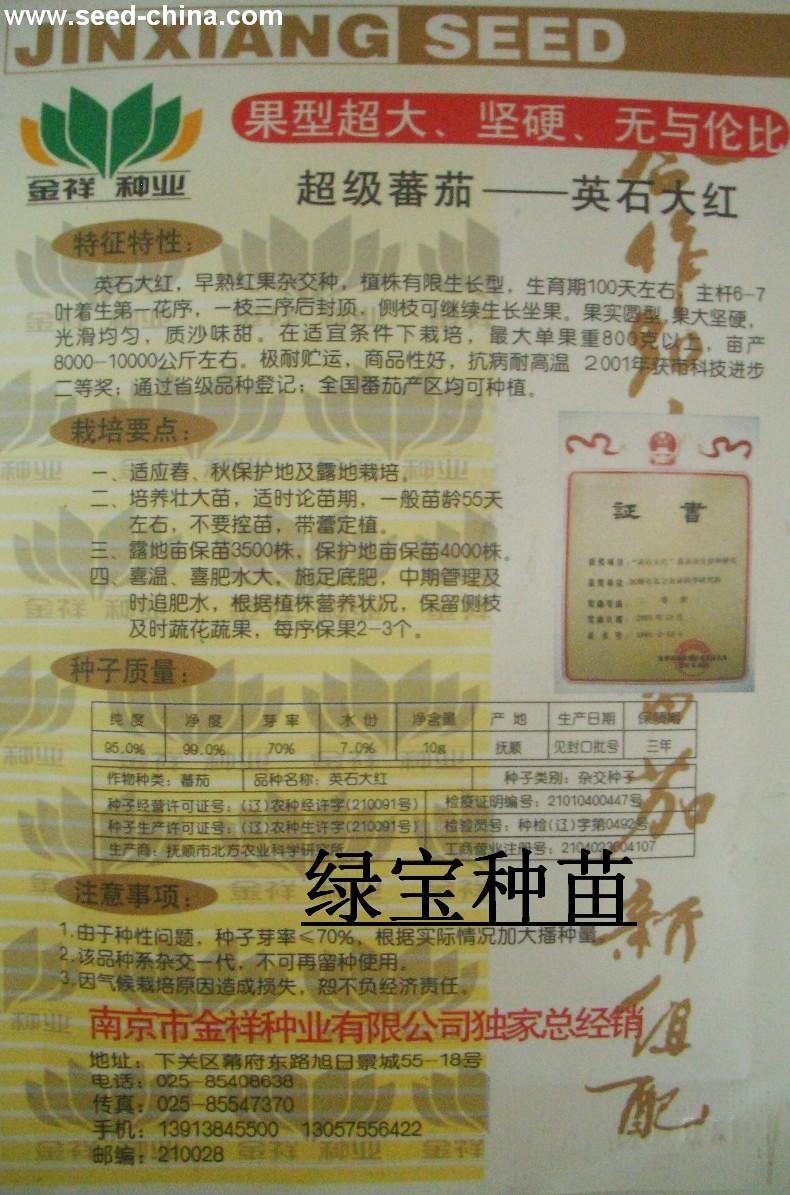 www.seed-china.com
JINXIANG SEED
果型超大、坚硬、无与伦比
金祥 种业
超级蕃茄——英石大红
特征特性：
英石大红，早熟红果杂交种，植株有限生长型，生育期100天左右，主杆6-7
叶着生第一花序，一枝三序后封顶，侧枝可继续生长坐果。果实圆型，果大坚硬，
光滑均匀，质沙味甜。在适宜条件下栽培，最大单果重800克以上，亩产
8000-10000公斤左右。极耐贮运，商品性好，抗病耐高温 2001年获市科技进步
二等奖；通过省级品种登记；全国番茄产区均可种植。
栽培要点：
一、适应春、秋保护地及露地栽培。
二、培养壮大苗，适时论苗期，一般苗龄55天
左右，不要控苗，带蕾定植。
三、露地亩保苗3500株，保护地亩保苗4000株。
四、喜温、喜肥水大，施足底肥，中期管理及
时追肥水，根据植株营养状况，保留侧枝
及时蔬花蔬果，每序保果2-3个。
证書
种子质量：
纯度 净度 芽率 水份 净含量 产地 生产日期 保质期
95.0% 99.0% 70% 7.0% 10g 抚顺 见封口批号 三年
作物种类：蕃茄 品种名称：英石大红 种子类别：杂交种子
种子经营许可证号：(辽)农种经许字(210091号) 检疫证明编号：21010400447号
种子生产许可证号：(辽)农种生许字(210091号) 检验员号：种检(辽)字第0492号
生产商：抚顺市北方农业科学研究所 工商营业注册号：2104023004107
绿宝种苗
注意事项：
1.由于种性问题，种子芽率≤70%，根据实际情况加大播种量
2.该品种系杂交一代，不可再留种使用。
3.因气候栽培原因造成损失，恕不负经济责任。
南京市金祥种业有限公司独家总经销
地址：下关区幕府东路旭日景城55-18号
电话：025-85408638
传真：025-85547370
手机：13913845500 13057556422
邮编：210028
茄
新
组
配